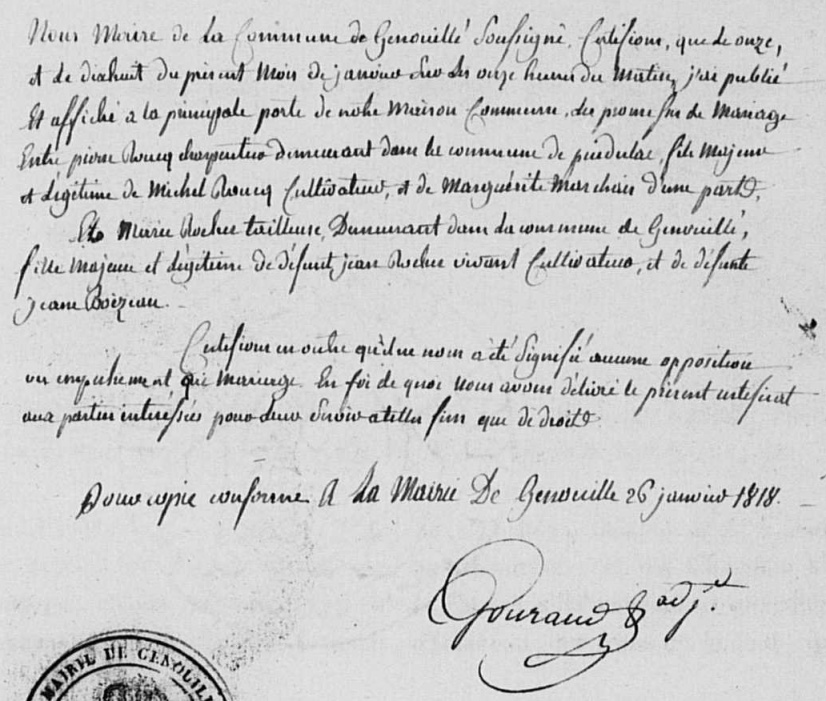 Nous Maire de la Commune de Genouillé Soussigné, Certifions, que le onze,
et de dixhuit du présent Mois de janvier Sur les onze heures du Matin, j'ai publié
Et affiché a la principale porte de notre Maison Commune, les promesses de Mariage
Entre pierre Roucq charpentier demeurant dans la commune de puidulac, fils Majeur
et Légitime de Michel Roucq Cultivateur, et de Marguérite Marchais d'une part,
Et Marie Rocher tailleuse, Demeurant dans la commune de Genouillé,
fille Majeure et Légitime de défunt jean Rocher vivant Cultivateur, et de défunte
jeanne Boizeau.
Certifions en outre qu'il ne nous a été Signifié aucune opposition
ou empechement au Mariage. En foi de quoi Nous avons délivré le présent certificat
aux parties intéressées pour leur Servir a telles fins que de droit
Pour copie conforme A La Mairie De Genouille 26 janvier 1818.
Gouraud adj.t
MAIRIE DE GENOUILL